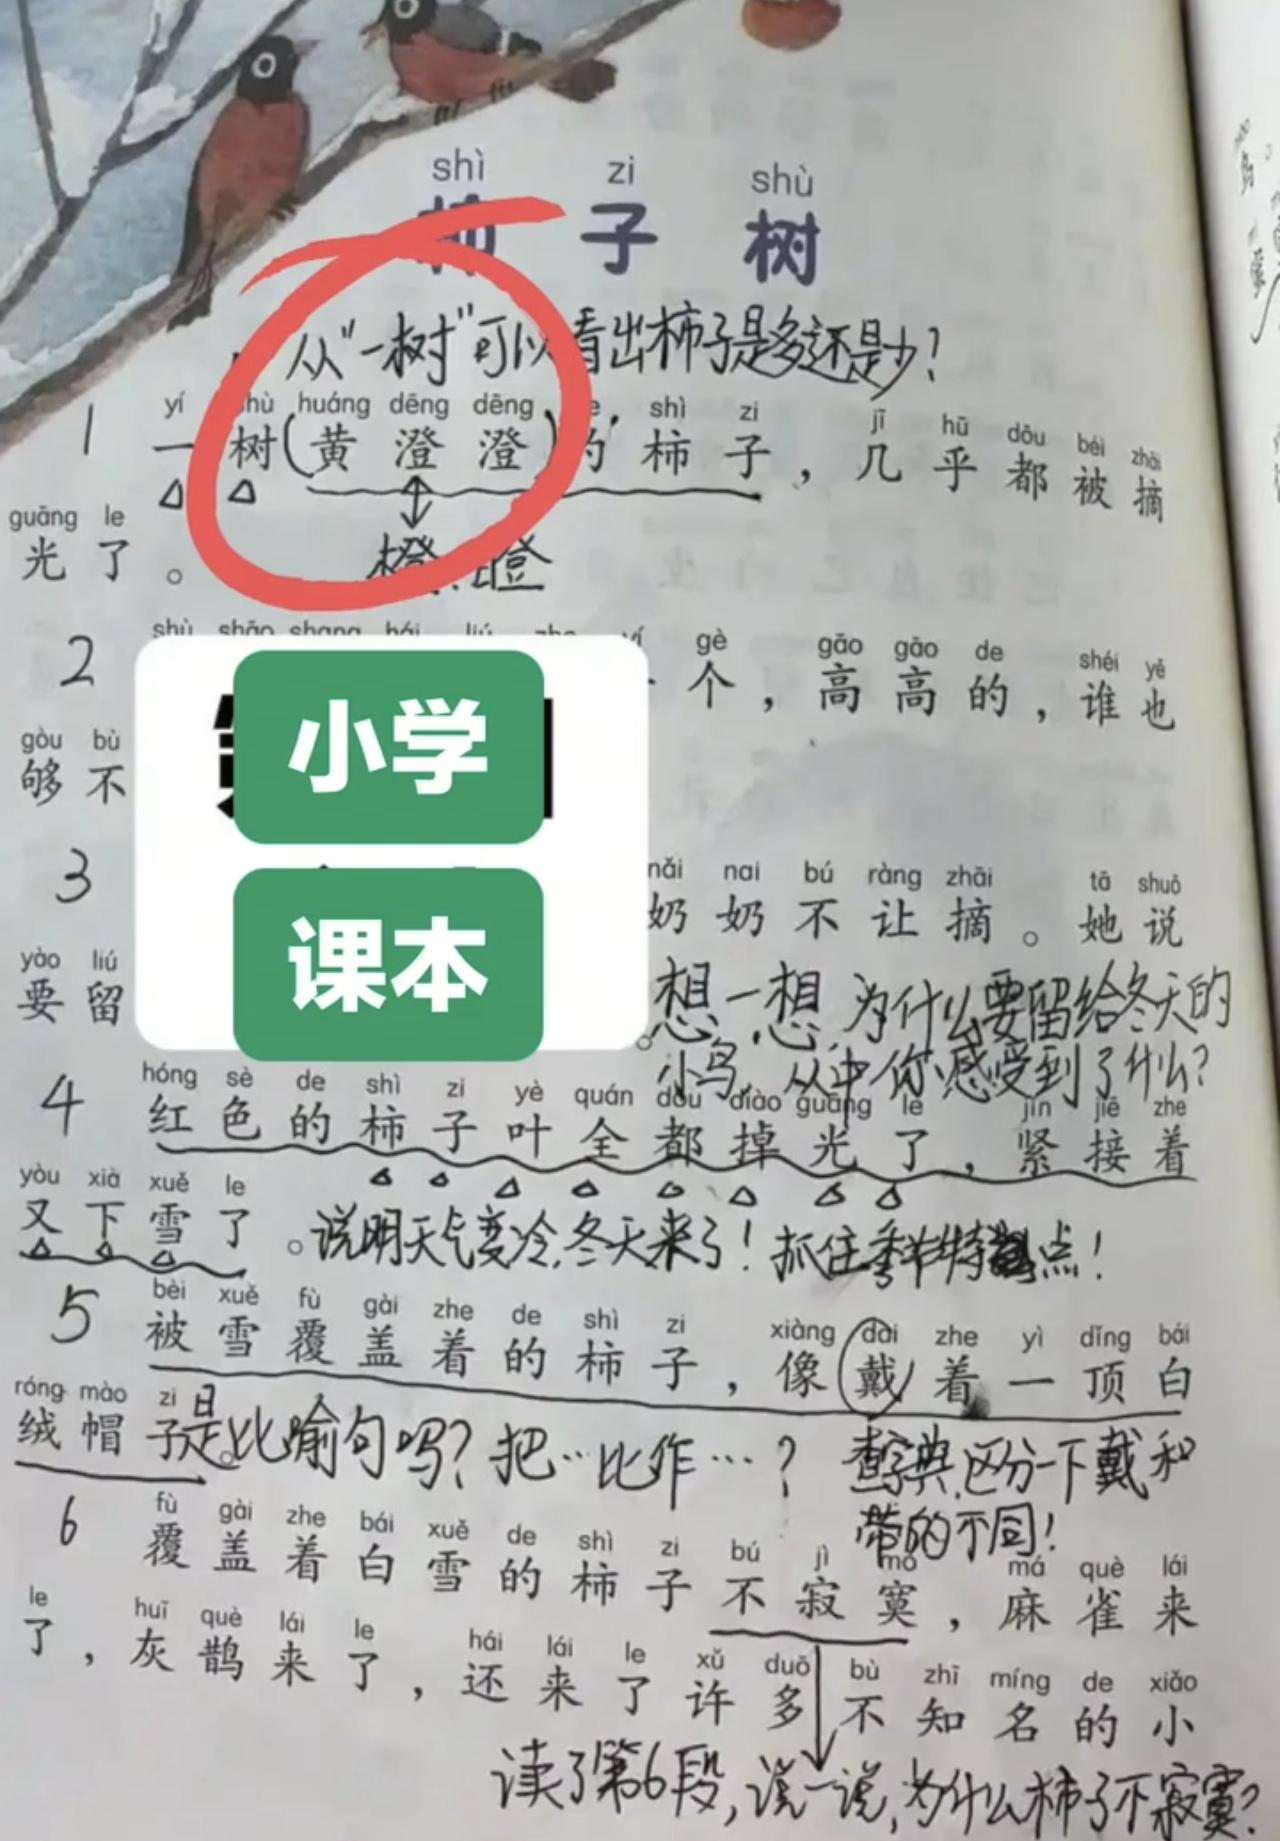 shì zi shù
柿子树
从"一树"可以看出柿子是多还是少?
yí shù huáng dēng dēng de shì zi jī hū dōu bèi zhāi
1 一树(黄澄澄)的柿子，几乎都被摘
guāng le
光了。
橙 瞪
shù shāo shang hái liú zhe yí gè gāo gāo de shéi yě
2 个，高高的，谁也
gòu bù
够不
小学
课本
nǎi nai bú ràng zhāi tā shuō
3 奶奶不让摘。她说
yào liú
要留
。想一想,为什么要留给冬天的
小鸟,从中你感受到了什么?
hóng sè de shì zi yè quán dōu diào guāng le jǐn jiē zhe
4 红色的柿子叶全都掉光了，紧接着
yòu xià xuě le
又下雪了。说明天气变冷,冬天来了! 抓住季节特点!
bèi xuě fù gài zhe de shì zi xiàng dài zhe yì dǐng bái
5 被雪覆盖着的柿子，像戴着一顶白
róng mào zi
绒帽子。是比喻句吗? 把…比作…? 查字典,区分一下戴和
带的不同!
fù gài zhe bái xuě de shì zi bú jì mò má què lái
6 覆盖着白雪的柿子不寂寞，麻雀来
le huī què lái le hái lái le xǔ duō bù zhī míng de xiǎo
了，灰鹊来了，还来了许多不知名的小
读了第6段,说一说,为什么柿子不寂寞?